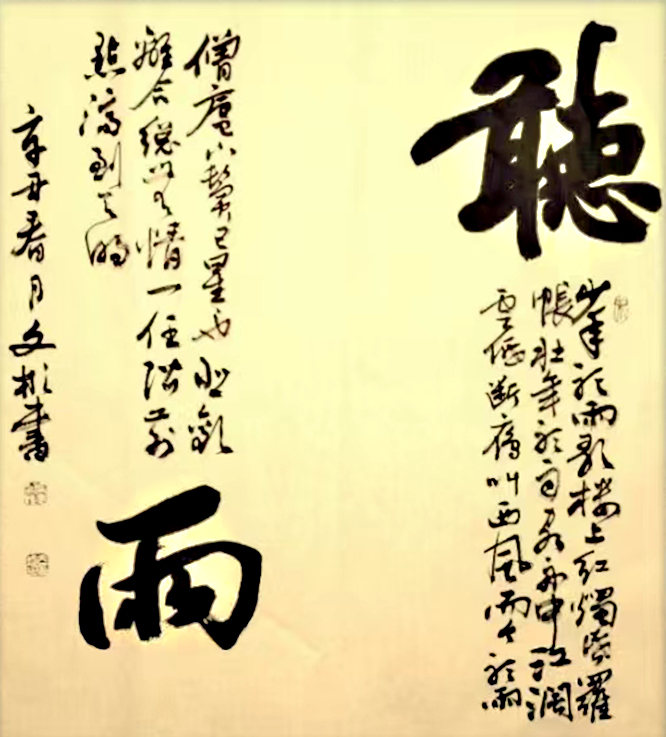 聽
少年聽雨歌楼上紅燭昏羅
帳壮年聽雨客舟中江闊
雲低断雁叫西風而今聽雨
僧廬下鬢已星也悲歡
離合總無情一任階前
點滴到天明
雨
辛丑春月文彬書